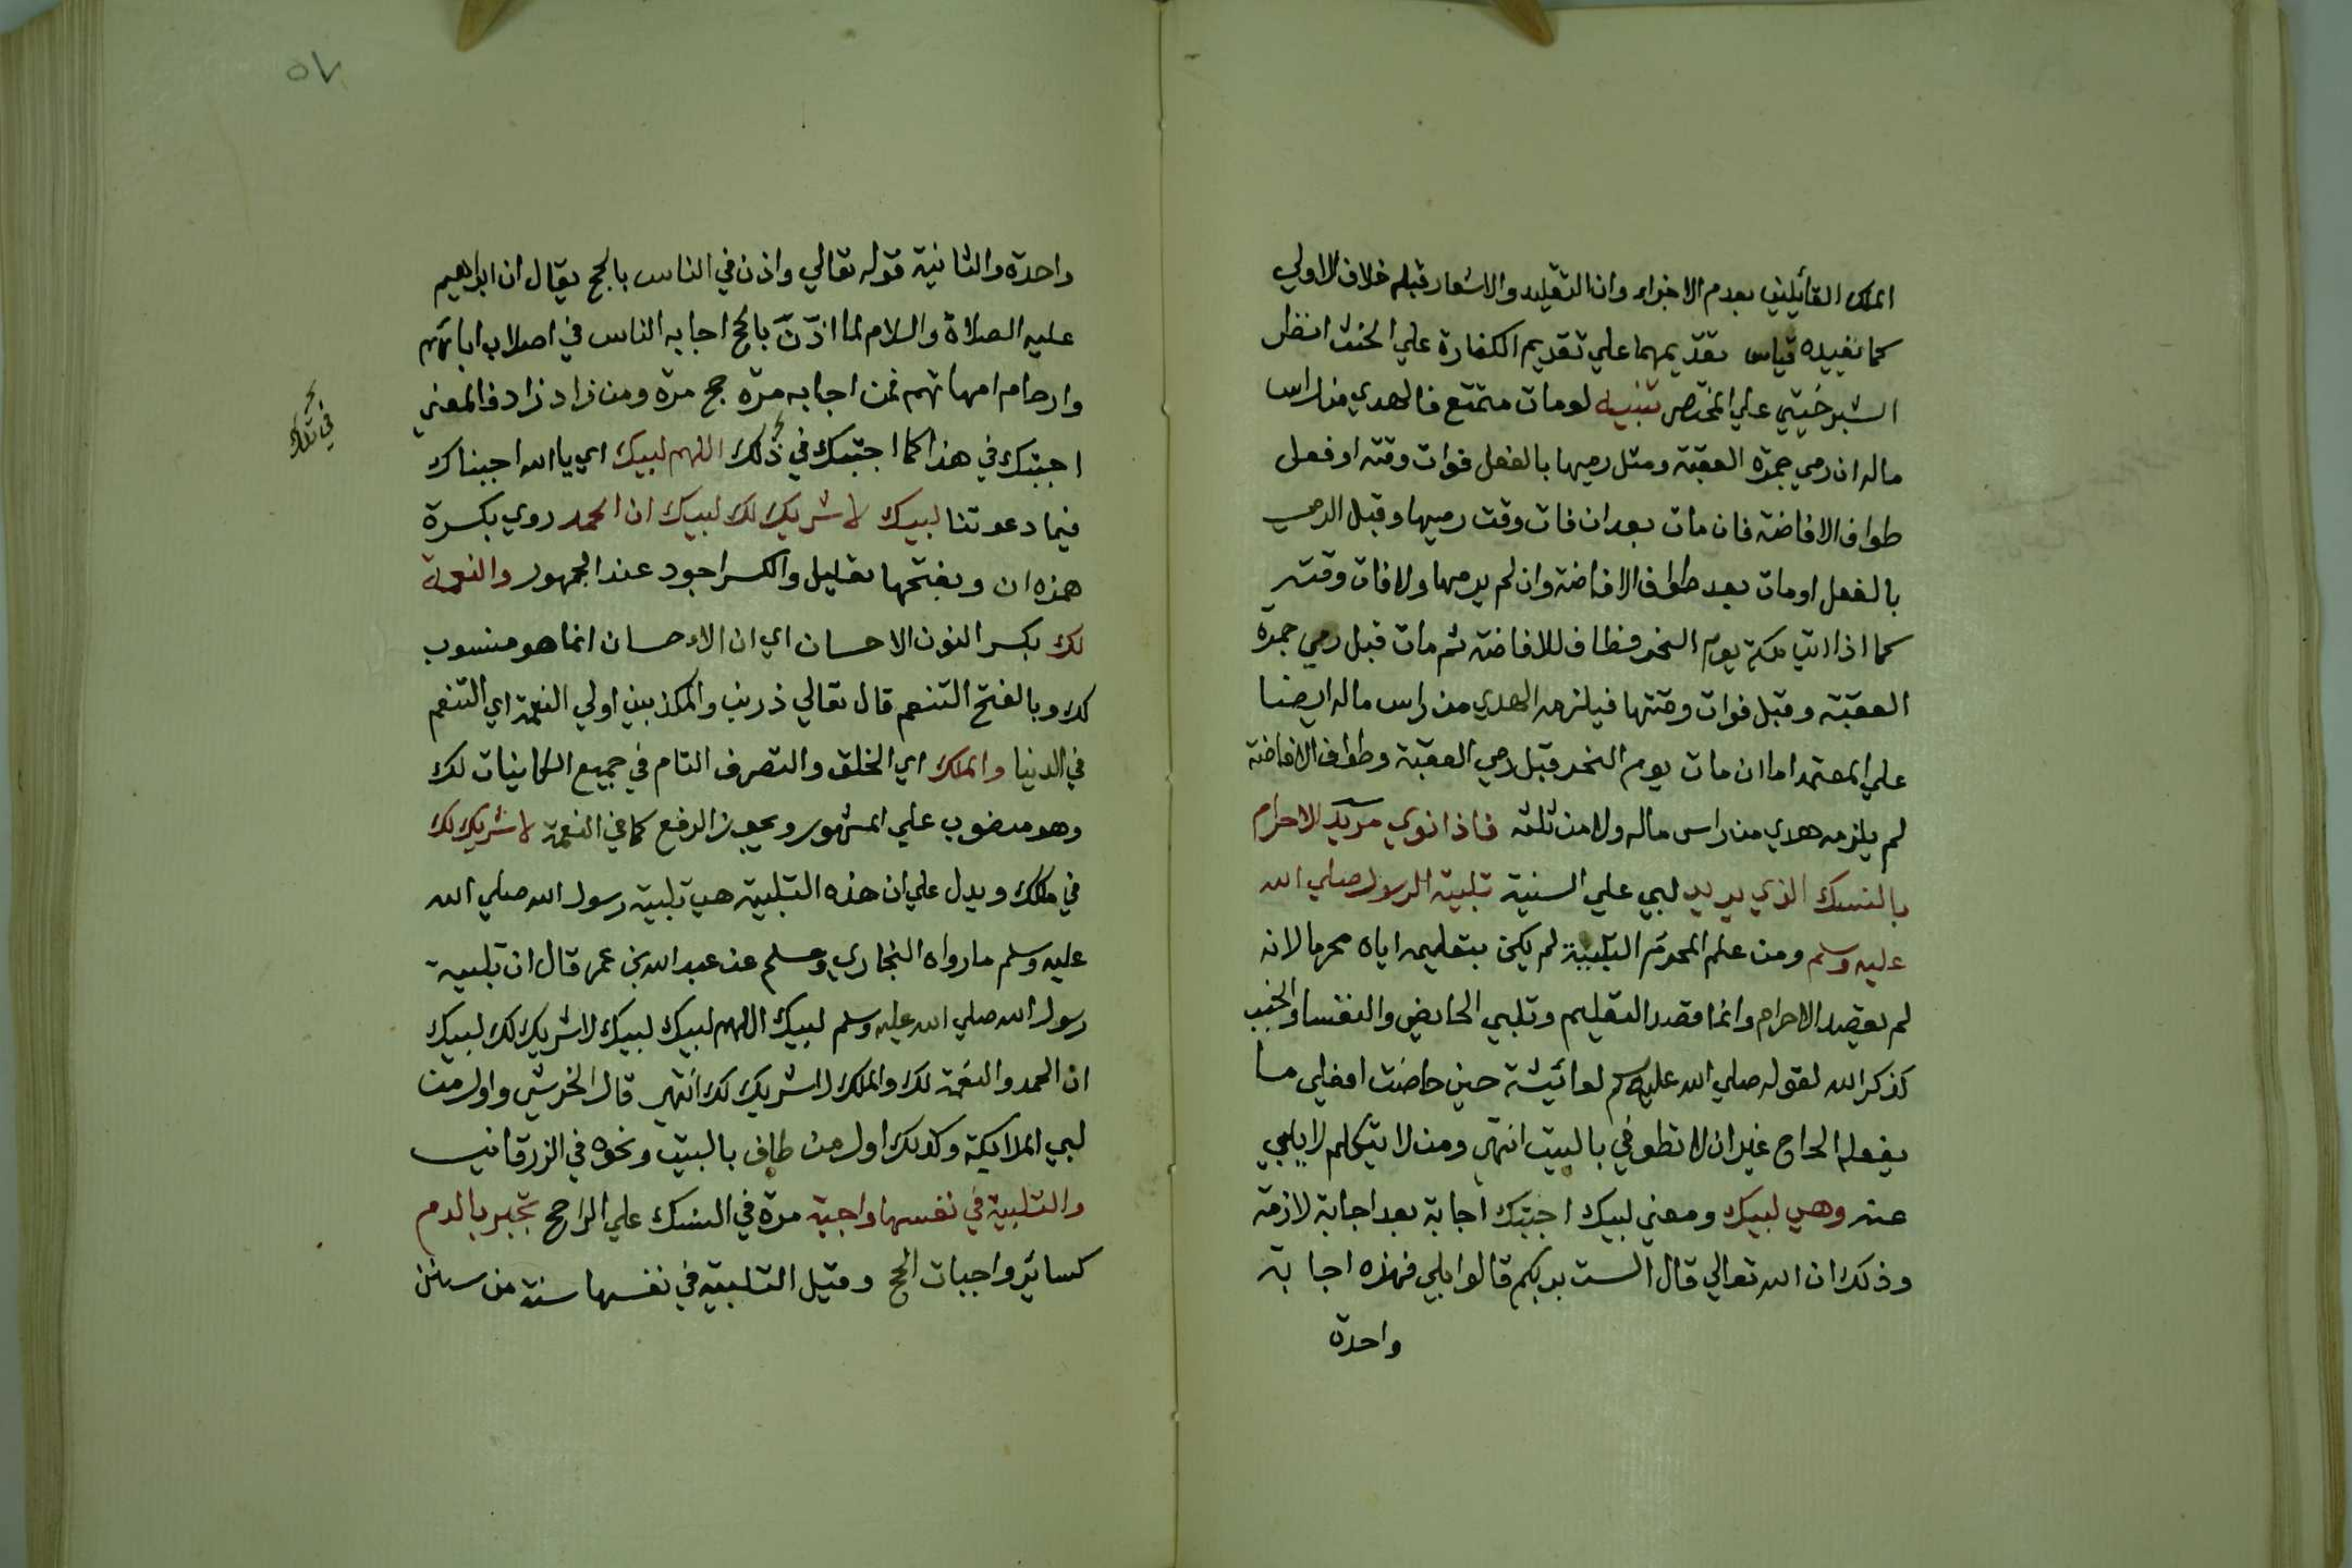 الملك القائلين بعدم الاجزاء وان التقليد والاشعار قبله خلاف الاولي
كما يفيده قياس تقديمهما علي تقديم الكفارة علي الحنث انظر
الشبرخيتي علي المختصر تنبيه لو مات متمتع فالهدي من راس
ماله ان رمي جمرة العقبة ومثل رميها بالفعل فوات وقته او فعل
طواف الافاضة فان مات بعد ان فات وقت رميها وقبل الرمي
بالفعل او مات بعد طواف الافاضة وان لم يرمها ولا فات وقته
كما اذا اتي مكة يوم النحر وطاف للافاضة ثم مات قبل رمي جمرة
العقبة وقبل فوات وقتها فيلزمه الهدي من راس ماله ايضا
علي المعتمد اما ان مات يوم النحر قبل رمي العقبة وطواف الافاضة
لم يلزمه هدي من راس ماله ولا من ثلثه فاذا نوي مريد الاحرام
بالنسك الذي يريد لبي علي السنية تلبية الرسول صلي الله
عليه وسلم ومن علم المحرم التلبية لم يكن بتعليمه اياه محرما لانه
لم يقصد الاحرام وانما قصد التعليم وتلبي الحايض والنفسا والجنب
كذكر الله لقوله صلي الله عليه وسلم لعائيشة حين حاضت افعلي ما
يفعله الحاج غير ان لا تطوفي بالبيت انتهي ومن لا يتكلم لا يلبي
عنه وهي لبيك ومعني لبيك اجبتك اجابة بعد اجابة لازمة
وذلك ان الله تعالي قال الست بربكم قالوا بلي فهذه اجابة
واحدة
٥٧
واحدة والثانية قوله تعالي واذن في الناس بالحج يقال ان ابراهيم
عليه الصلاة والسلام لما اذن بالحج اجابه الناس في اصلاب ابائهم
وارحام امهاتهم فمن اجابه مرة حج مرة ومن زاد زاد فالمعني
اجبتك في هذا كما اجبتك في ذلك اللهم لبيك اي يا الله اجبناك
في تلك
فيما دعوتنا لبيك لا شريك لك لبيك ان الحمد روي بكسرة
همزه ان وبفتحها تعليل والكسر اجود عند الجمهور والنعمة
لك بكسر النون الاحسان اي ان الاحسان انما هو منسوب
لك وبالفتح التنعم قال تعالي ذرني والمكذبين اولي النعمة اي التنعم
في الدنيا والملك اي الخلق والتصرف التام في جميع الكاينات لك
وهو منصوب علي المشهور ويجوز الرفع كما في النعمة لا شريك لك
في ملكك ويدل علي ان هذه التلبية هي تلبية رسول الله صلي الله
عليه وسلم ما رواه البخاري ومسلم عن عبد الله بن عمر قال ان تلبية
رسول الله صلي الله عليه وسلم لبيك اللهم لبيك لبيك لا شريك لك لبيك
ان الحمد والنعمة لك والملك لا شريك لك انتهي قال الخرشي واول من
لبي الملايكة وكذلك اول من طاف بالبيت ونحوه في الزرقاني
والتلبية في نفسها واجبة مرة في النسك علي الراجح تجبر بالدم
كسائر واجبات الحج وقيل التلبية في نفسها سنة من سنن